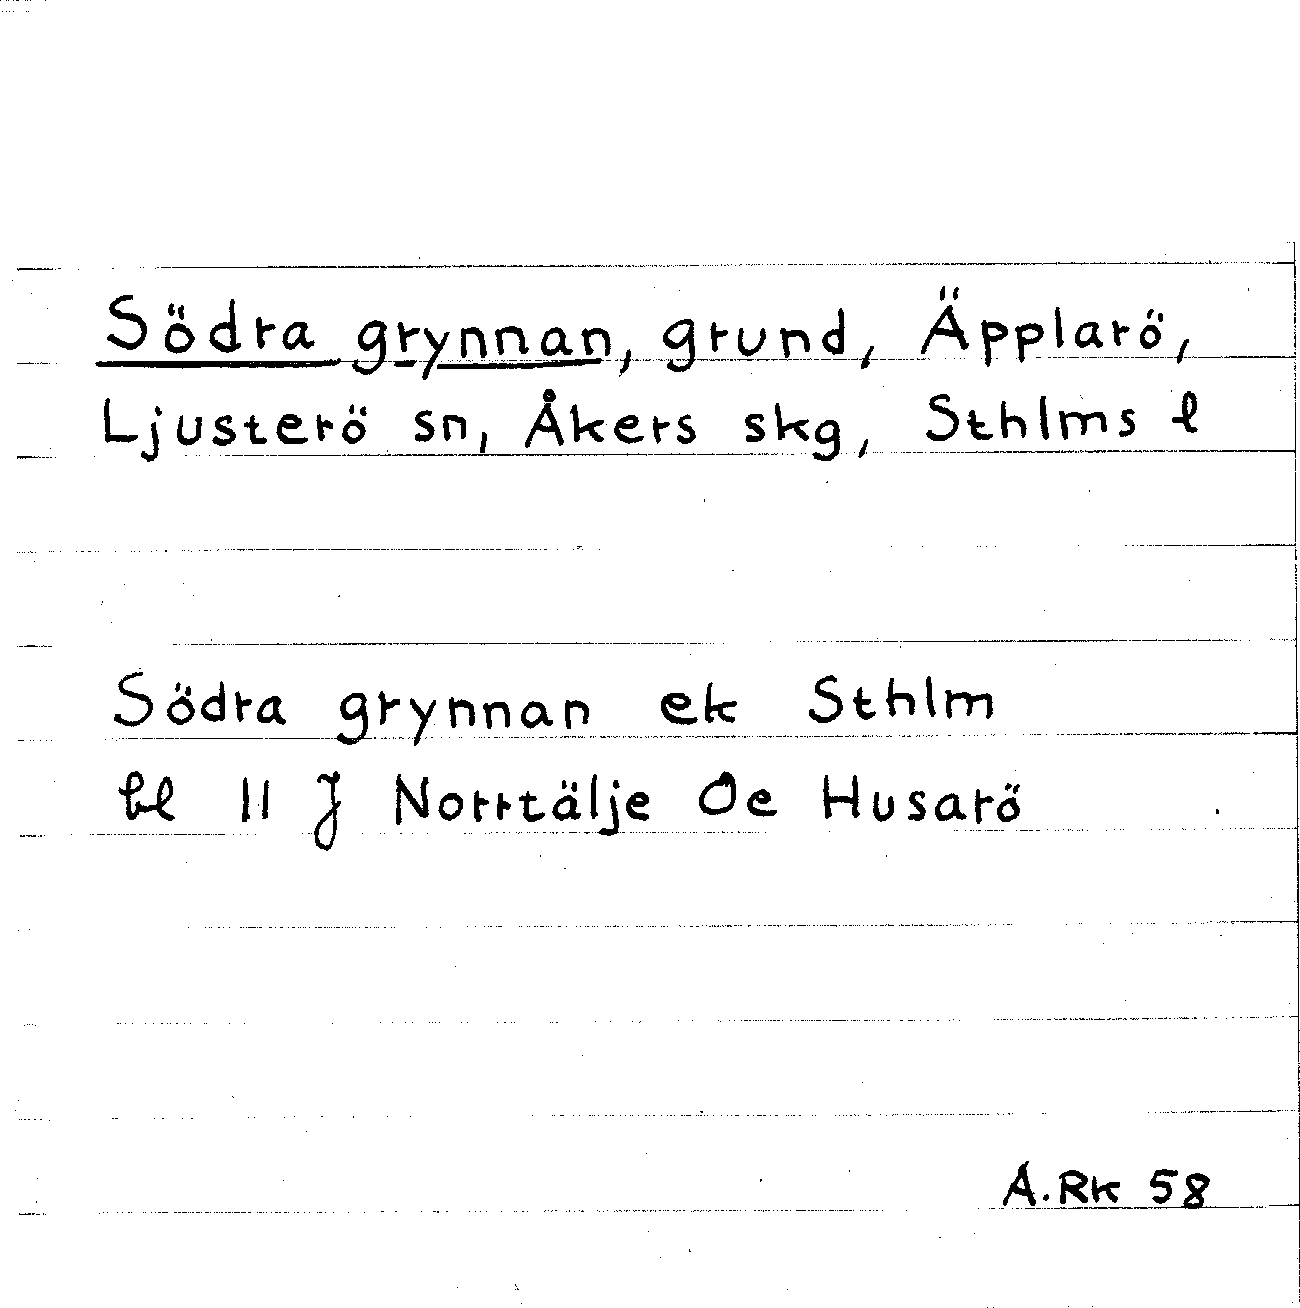 Södra grynnan, grund, Äpplarö,
Ljusterö sn, Åkers skg, Sthlms l
Södra grynnan ek Sthlm
bl 11 J Norrtälje Oe Husarö
A.Rk 58